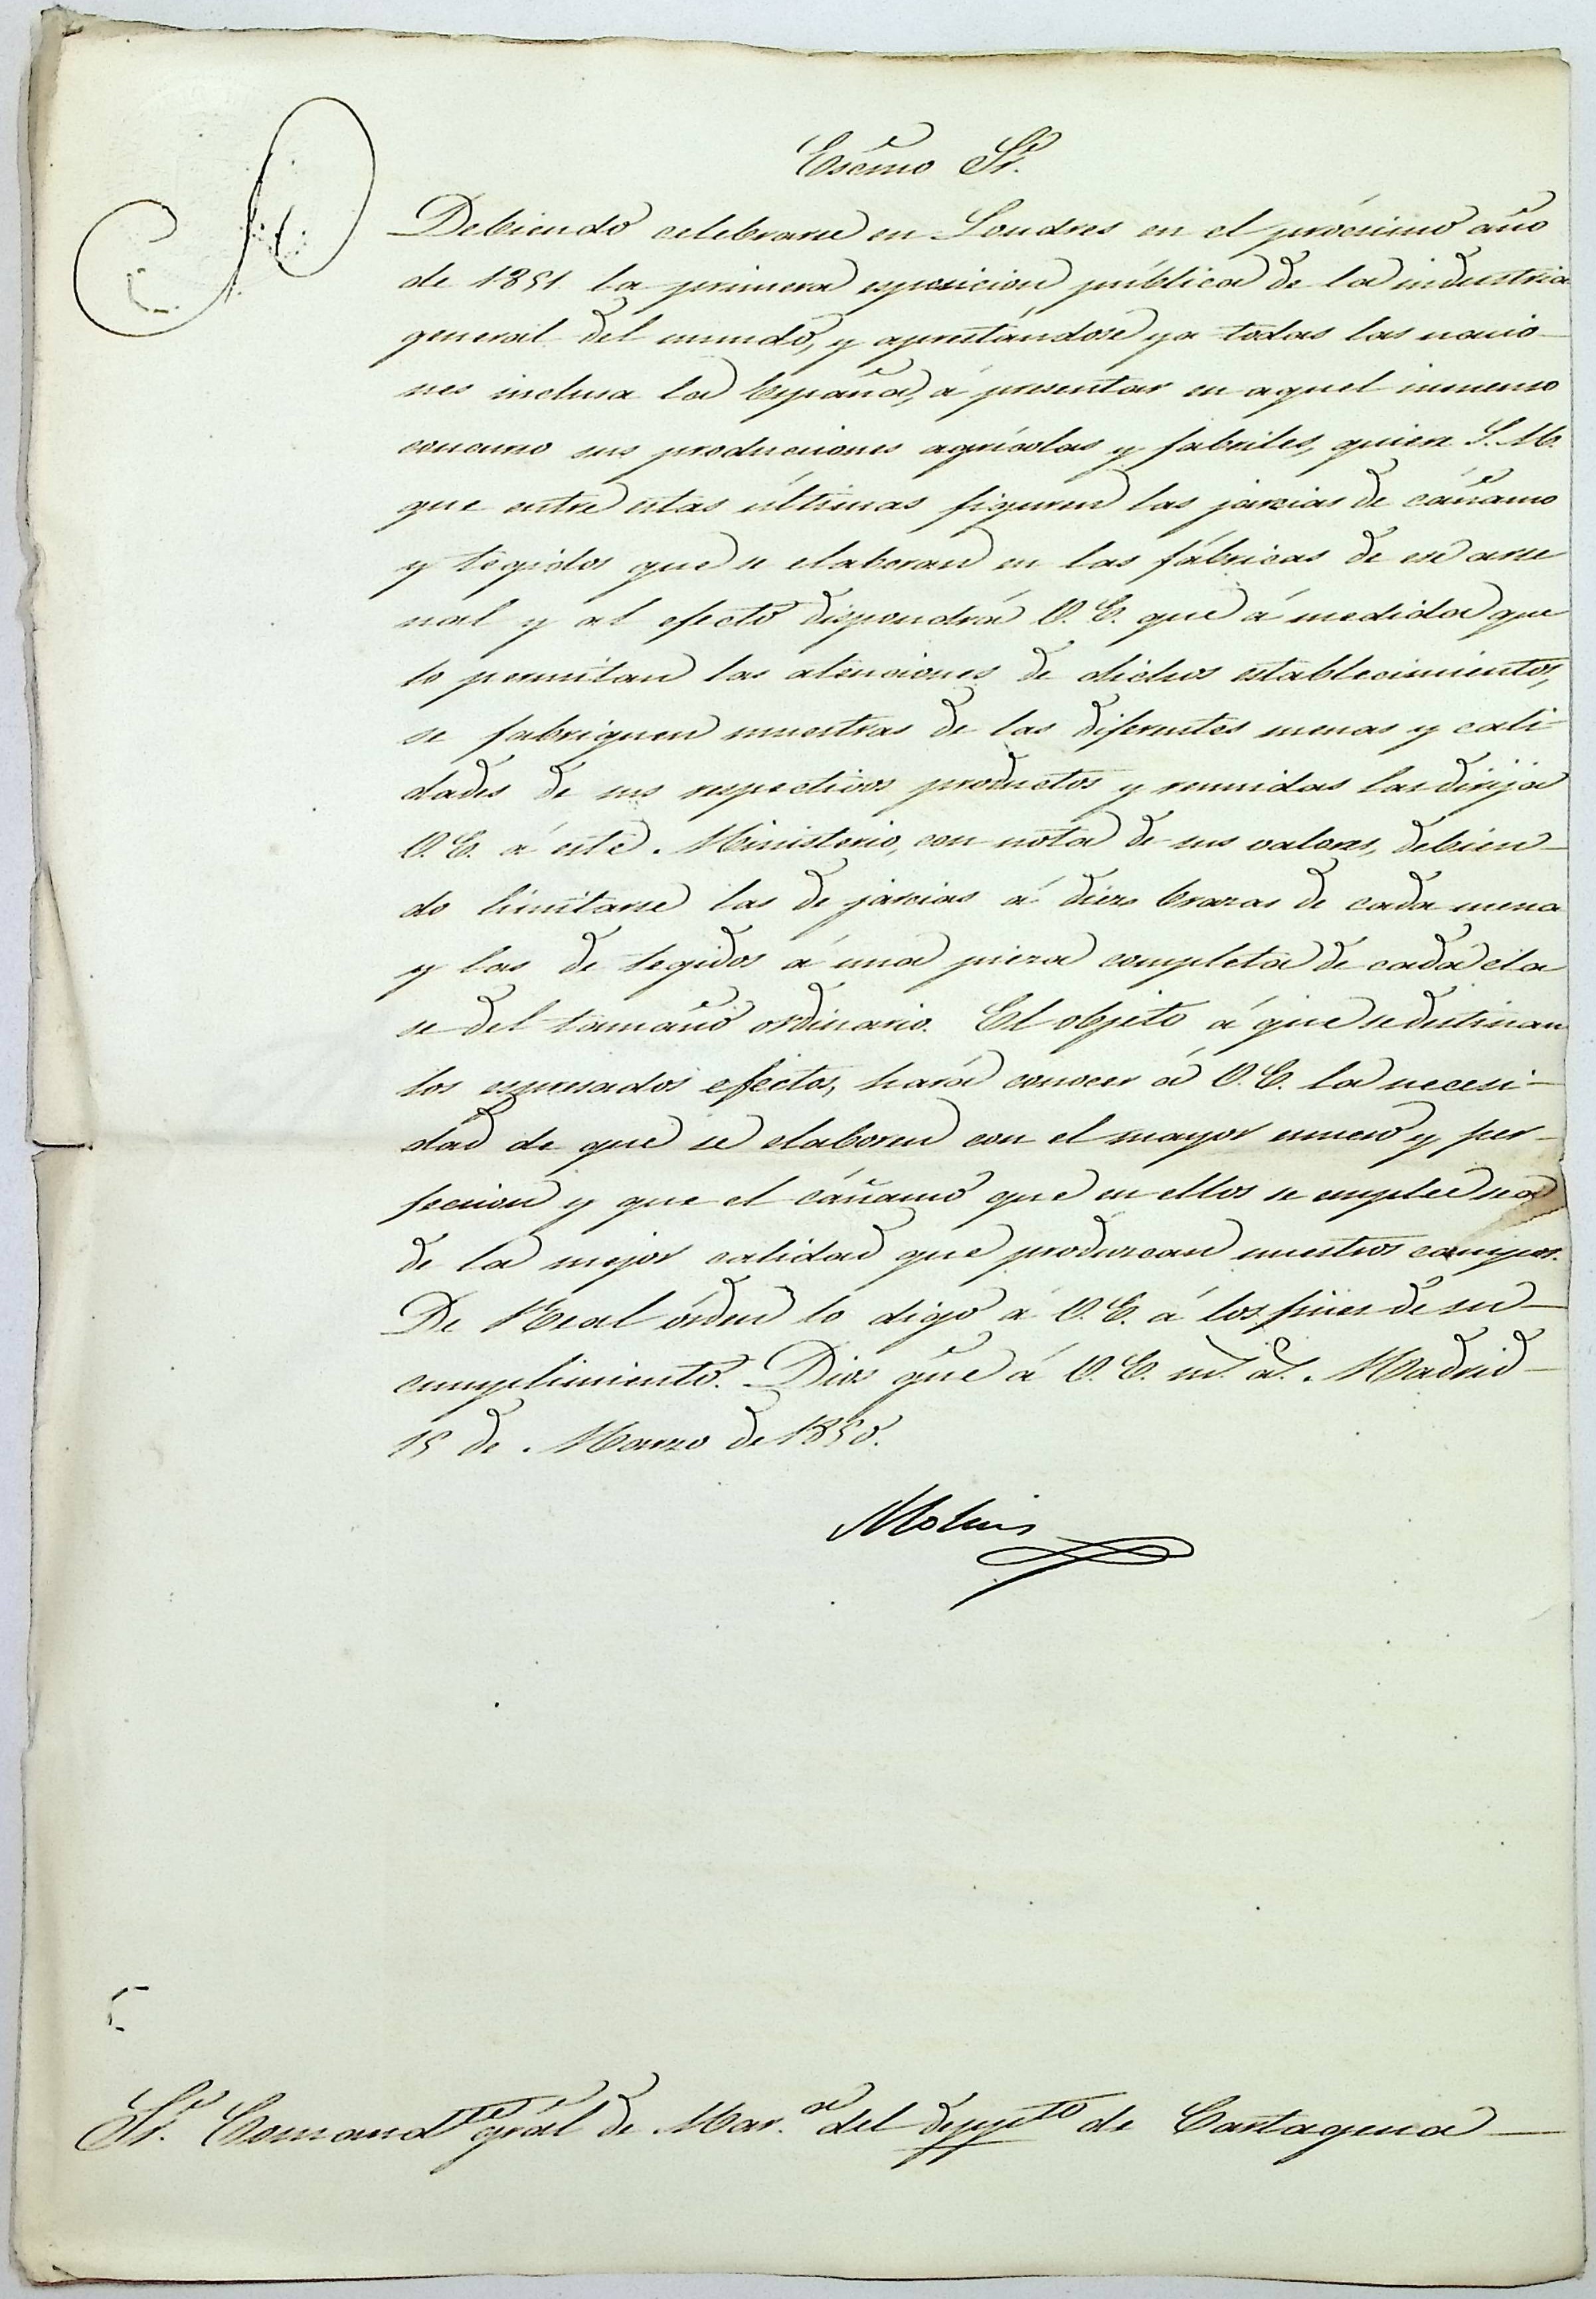 Escmo Sr.
Debiendo celebrarse en Londres en el prócsimo año
de 1851 la primera esposicion pública de la industria
general del mundo, y aprestándose ya todas las nacio-
nes inclusa la España, á presentar en aquel inmenso
concurso sus producciones agrícolas y fabriles, quiere S. M.
que entre estas últimas figuren las jarcias de cáñamo
y tegidos que se elaboran en las fábricas de ese arse
nal y al efecto dispondrá V. E. que á medida que
lo permitan las atenciones de dichos establecimientos,
se fabriquen muestras de las diferentes menas y cali-
dades de sus respectivos productos y reunidas las dirija
V. E. á este Ministerio, con nota de sus valores, debien-
do limitarse las de jarcias á diez brazas de cada mena
y las de tegidos á una pieza completa de cada cla
se del tamaño ordinario. El objeto á que se destinan
los espresados efectos, hará conocer á V. E. la necesi-
dad de que se elaboren con el mayor esmero y per-
feccion y que el cáñamo que en ellos se emplee sea
de la mejor calidad que produzcan nuestros campos.
De Real órden lo digo á V. E. á los fines de su
cumplimiento. Dios gũe á V. E. m.s a.s Madrid
15 de Marzo de 1850.
Molins
Sr. Comandte gral de Mar.a del deppto de Cartagena